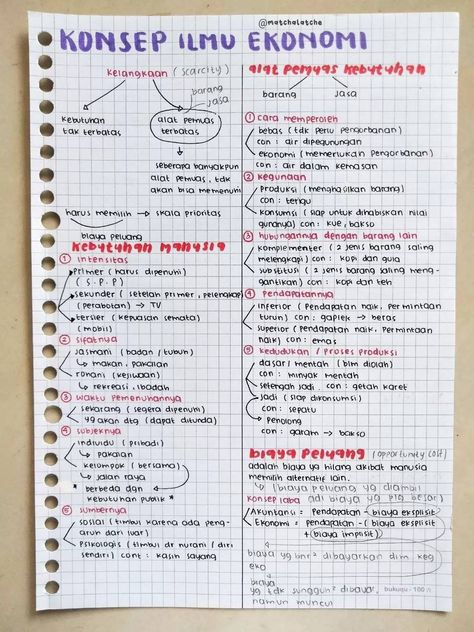 @matchalatche
KONSEP ILMU EKONOMI
kelangkaan (scarcity)
kebutuhan
tak terbatas
barang
jasa
alat pemuas
terbatas
seberapa banyakpun
alat pemuas, tdk
akan bisa memenuhi
harus memilih → skala prioritas
biaya peluang
kebutuhan manusia
① intensitas
primer (harus dipenuhi)
(S.P.P)
sekunder (setelah primer, pelengkap)
(perabotan) → TV
tersier (kepuasan semata)
(mobil)
② sifatnya
jasmani (badan / tubuh)
↳ makan, pakaian
rohani (kejiwaan)
↳ rekreasi, ibadah
③ waktu pemenuhannya
sekarang (segera dipenuhi)
yg akan dtg (dapat ditunda)
④ subjeknya
individu (pribadi)
↳ pakaian
kelompok (bersama)
↳ jalan raya
* berbeda dgn
kebutuhan publik *
⑤ sumbernya
sosial (timbul karena ada peng-
aruh dari luar)
psikologis (timbul dr nurani / diri
sendiri) cont : kasih sayang
alat pemuas kebutuhan
barang jasa
① cara memperoleh
bebas (tdk perlu pengorbanan)
con : air dipegunungan
ekonomi (memerlukan pengorbanan)
con : air dalam kemasan
② kegunaan
produksi (menghasilkan barang)
con : terigu
konsumsi (siap untuk dihabiskan nilai
gunanya) con : kue, bakso
③ hubungannya dengan barang lain
komplementer (2 jenis barang saling
melengkapi) con : kopi dan gula
substitusi (2 jenis barang saling meng-
gantikan) con : kopi dan teh
④ pendapatannya
inferior (pendapatan naik, permintaan
turun) con : gaplek → beras
superior (pendapatan naik, permintaan
naik) con : emas
⑤ kedudukan / proses produksi
dasar / mentah (blm diolah)
con : minyak mentah
setengah jadi con : getah karet
jadi (siap dikonsumsi)
con : sepatu
penolong
con : garam → bakso
biaya peluang (opportunity cost)
adalah biaya yg hilang akibat manusia
memilih alternatif lain.
↳ (biaya peluang yg diambil
adl biaya yg plg besar)
konsep laba
Akuntansi = pendapatan - biaya eksplisit
Ekonomi = pendapatan - (biaya eksplisit
+ (biaya implisit)
biaya yg bnr² dibayarkan dlm keg
eko
biaya
yg tdk sungguh² dibayar,
namun muncul